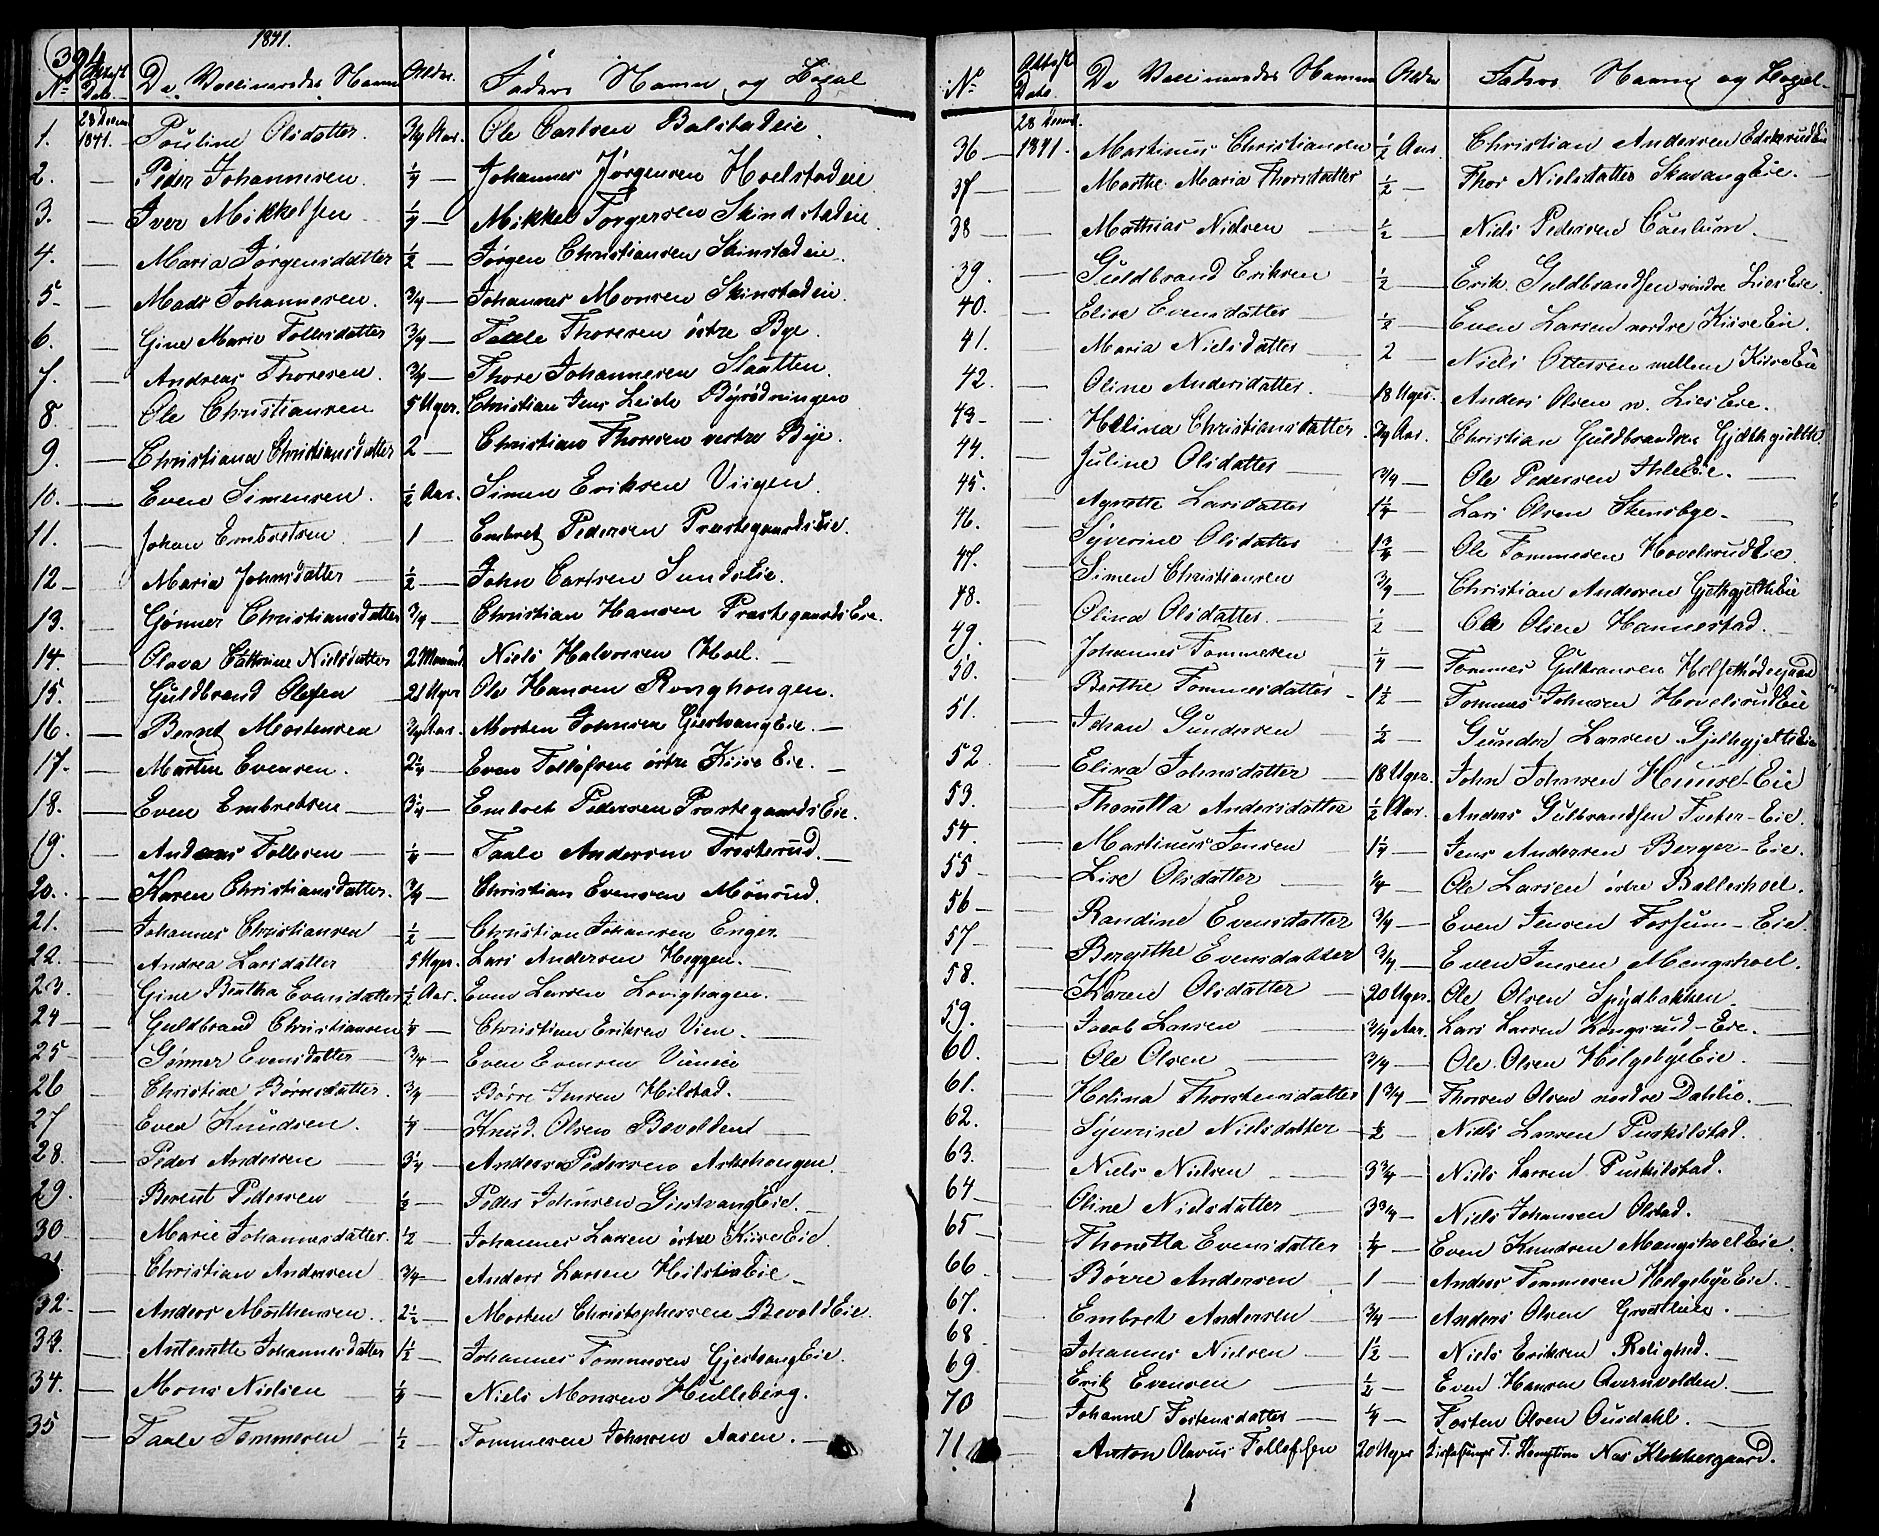 394
1841.
No Attest Dato De Vaccineredes Navne Alder Faders Navn og Logal
1. 28 Decemb 1841. Pauline Olsdatter. 3/4 Aar. Ole Carlsen Balstadeie.
2. — Peder Johannesen 1/4 — Johannes Jørgensen Hoelstadeie
3. — Iver Mikkelsen 1/4 — Mikkel Torgersen Skindstadeie
4. — Maria Jørgensdatter 1/2 — Jørgen Christiansen Skinstadeie
5 — Mads Johannesen. 3/4 — Johannes Monsen Skinstadeie.
6. — Gine Marie Tollesdatter 3/4 — Taale Thoresen östre Bye.
7. — Andreas Thoresen. 3/4 — Thore Johannesen Slaatten.
8. — Ole Christiansen 5 Uger. Christian Jens Leide Byrödningen
9. — Christiana Christiansdatter 2 — Christian Thoresen vestre Bye.
10. — Even Simensen. 1/2 Aar. Simen Eriksen Viigen
11. — Johan Embretsen 1 — Embret Pedersen PræstegaardsEie.
12 — Maria Johnsdatter — 1/2 — John Carlsen SundsEie.
13. — Gönner Christiansdatter 3/4 — Christian Hansen PræstegaardsEie.
14. — Olava Cathrine Nielsdatter 2 Maaned Niels Halvorsen Hoel. —
15. — Guldbrand Olefsen 21 Uger Ole Hansen Ronghougen.
16. — Bernt Mortensen 3/4 Aar. Morten Johnsen GiestvangEie. —
17. — Martin Evensen. 2 1/4 — Even Tollefsen östre Kiise Eie. —
18. — Even Embretsen — 3 1/4 — Embret Pedersen PræstegaardsEie.
19. — Andreas Tollesen — 1/4 — Taale Andersen Trosterud. —
20. — Karen Christiansdatter. 3/4 — Christian Evensen Mönrud.
21. — Johannes Christiansen — 1/2 — Christian Johansen Enger. —
22. — Andrea Larsdatter 5 Uger. Lars Andersen Heggen. —
23. — Gine Bertha Evensdatter 1/2 Aar. Even Larsen Lovighagen. —
24 — Guldbrand Christiansen 1/4 — Christian Eriksen Vien. —
25 — Gönner Evensdatter — 3/4 — Even Evensen —
26 — Christine Börresdatter. 3/4 — Börre Jensen Hilstad. —
27 — Even Knudsen. 1/4 — Knud Olsen Bevolden —
28. — Peder Andersen — 3 1/4 — Anders Pedersen Askehougen.
29. — Berent Pedersen — 1/2 — Peder Johnsen GiestvangEie. —
30 — Marie Johannesdatter. 1/2 — Johannes Larsen östre KiiseEie
— Christian Andersen 3/4 — Anders Larsen HilstadEie —
32. — Anders Morthensen. 2 1/2 — Morten Christophersen BevoldEie
33. — Antonette Johannesdatter 1 1/2 — Johannes Tommesen GjestvangEie.
34. — Mons Nielsen — 1/4 — Niels Monsen Hulleberg.
35 — Taale Tommesen — 1/2 — Tommesen Johnsen Aasen. —
No Attest Dato De Vaccineredes Navne Alder Faders Navn og Logal.
36 — 28 Decemb. 1841. Martinus Christiansen 1/2 Aar. Christian Andersen
37 — Marthe Maria Thorsdatter 1/2 — Thor Nielsdatter SkavangEie. —
38 — Mathias Nielsen 1/2 — Niels Pedersen Caulum. —
39. — Guldbrand Eriksen 1/2 — Erik Guldbrandsen söndre LiesEie.
40. — Elise Evensdatter 1/2 — Even Larsen nordre KiiseEie.
41. — Maria Nielsdatter — 2 — Niels Ottersen mellem KiiseEie
42. — Oline Andersdatter. 18 Uger. Anders Olsen n. LiesEie.
43 — Helina Christiansdatter. 3/4 Aar. Christian Guldbrandsen
44. — Juline Olsdatter — 3/4 — Ole Pedersen IhleEie. —
45. — Agnette Larsdatter 1 1/4 — Lars Olsen Stensbye. —
46. — Syverine Olsdatter — 1 3/4 — Ole Tommesen HovelsrudEie
47. — Simen Christiansen 3/4 — Christian Andersen
48. — Olina Olsdatter. — 1/2 — Ole Olsen Hannestad. —
49. — Johannes Tommesen 1/4 — Tommes Gulbransen
50. — Berthe Tommesdatter — 1 1/2 — Tommes Johnsen HovelsrudEie
51. — Johan Gundersen 1/2 — Gunder Larsen
52 — Elina Johnsdatter — 18 Uger. John Johnsen Huuse-Eie
53. — Thonetta Andersdatter 1/2 Aar. Anders Gulbrandsen Foster-Eie.
54 — Martinus Jensen 1 1/4 — Jens Andersen Berger-Eie.
55 — Lise Olsdatter — 1/4 — Ole Larsen östre Balleshoel.
56 — Randine Evensdatter 3/4 — Even Jensen Fossum-Eie
57 — Bergithe Evensdatter 3/4 — Even Jensen Mengshoel.
58. — Karen Olsdatter — 20 Uger. Ole Olsen Spydbakken —
59. — Jacob Larsen — 3/4 Aar. Lars Larsen Kongsrud-Eie. —
60. Ole Olsen — 3/4 — Ole Olsen HelgebyeEie. —
61. — Helina Thorstensdatter 1 3/4 — Thosten Olsen nordre Dahlie. —
62. — Syverine Nielsdatter — 1/2 — Niels Larsen Puskilstad.
63. — Niels Nielsen — 3 3/4 — Niels Larsen Puskilstad.
64 — Oline Nielsdatter — 3 3/4 — Niels Johansen Olstad. —
65 — Thonetta Evensdatter 1/4 — Even Knudsen MengshoelEie.
66 — Börre Andersen — 1 — Anders Tommesen HelgebyeEie. —
67. — Embret Andersen — 3/4 — Anders Olsen —
68 — Johannes Nielsen — 1 1/2 — Niels Eriksen Rolighed. —
69. — Erik Evensen — 1/2 — Even Hansen Avernvolden. —
70 — Johanne Tostensdatter — 1/4 — Tosten Olsen Ousdahl. —
71. — Anton Olavus Tollefsen 20 Uger Kloskergaard.